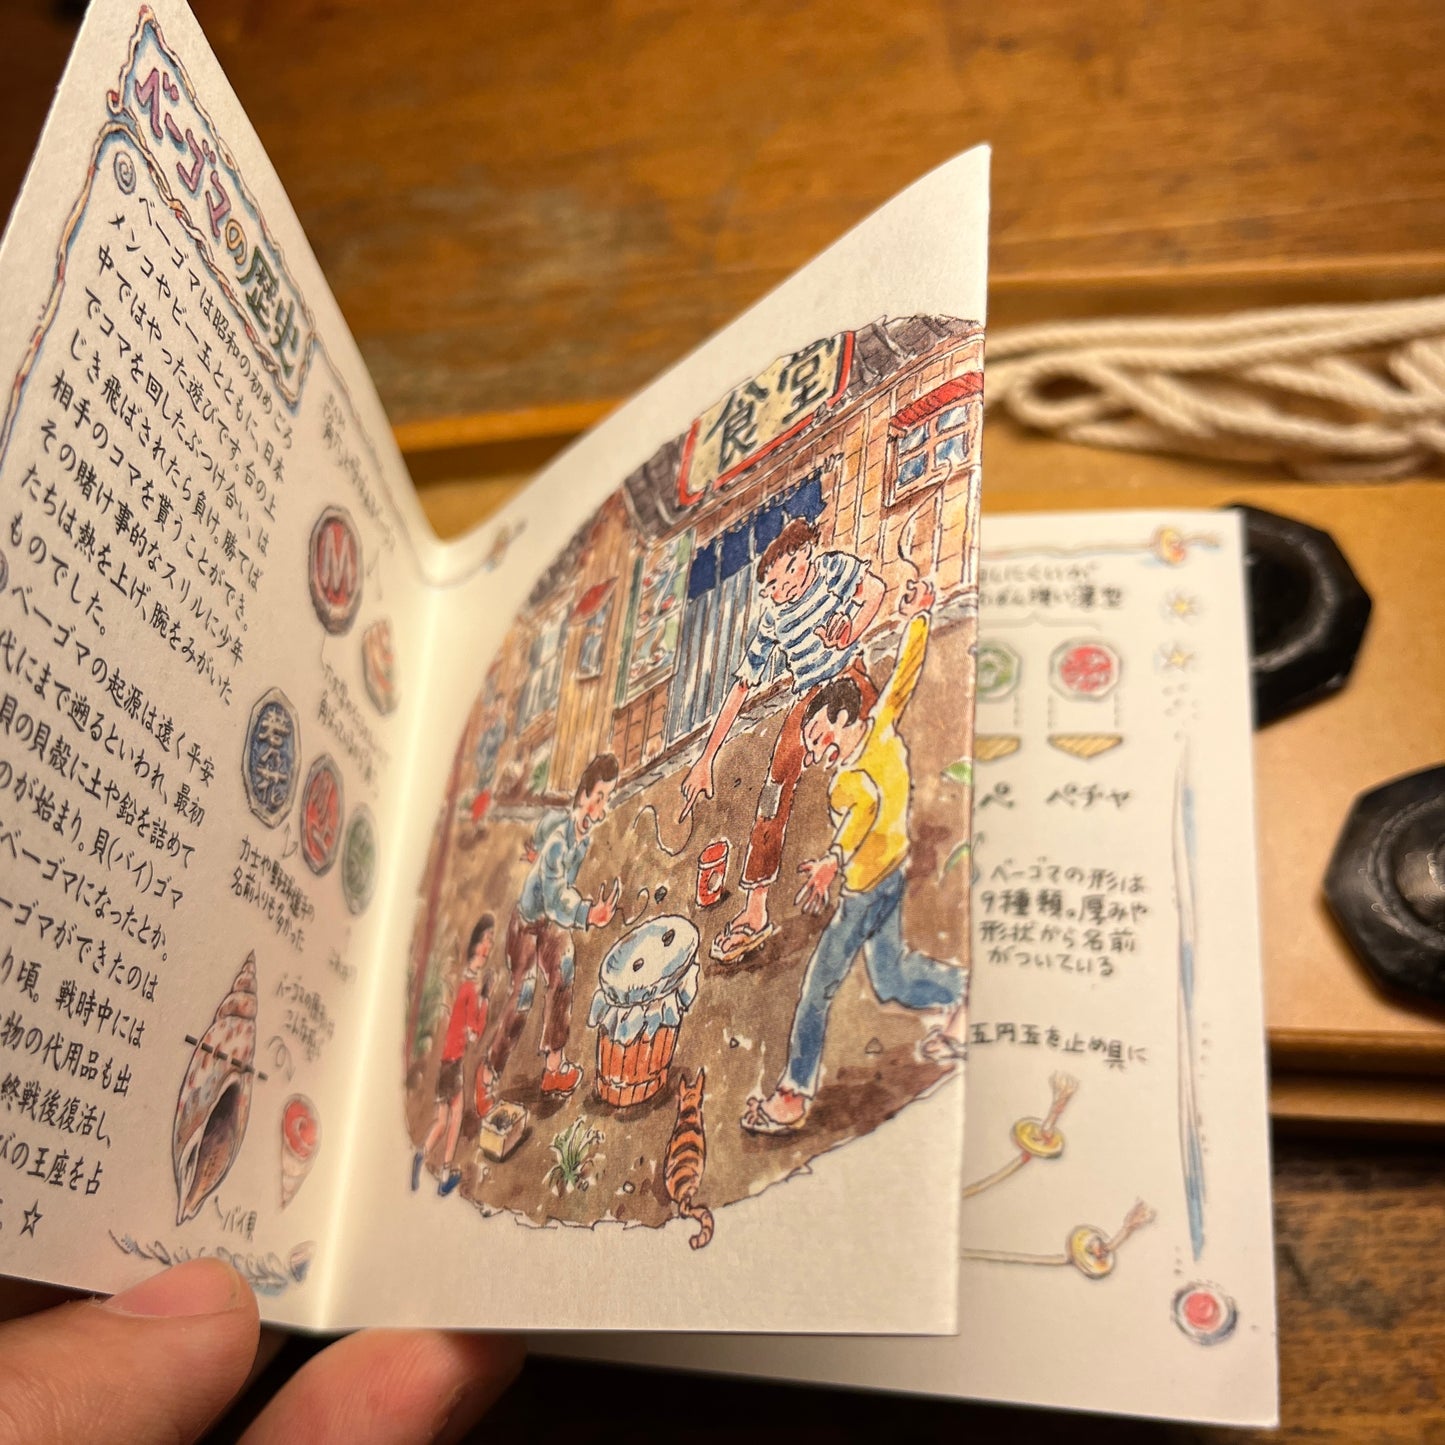 ベーゴマの歴史
ベーゴマは昭和の初めごろ
メンコやビー玉とともに、日本
中ではやった遊びです。台の上
でコマを回したぶつけ合い、は
じき飛ばされたら負け。勝てば
相手のコマを貰うことができ、
その賭け事的なスリルに少年
たちは熱を上げ、腕をみがいた
ものでした。
ベーゴマの起源は遠く平安
代にまで遡るといわれ、最初
貝の貝殻に土や鉛を詰めて
のが始まり。貝(バイ)ゴマ
ベーゴマになったとか。
ーゴマができたのは
り頃。戦時中には
物の代用品も出
終戦後復活し、
びの王座を占
☆
M
若乃花
力士や野球選手の
名前入りも多かった
バイ貝
食堂
ペチャ
ベーゴマの形は
9種類。厚みや
形状から名前
がついている
五円玉を止め具に